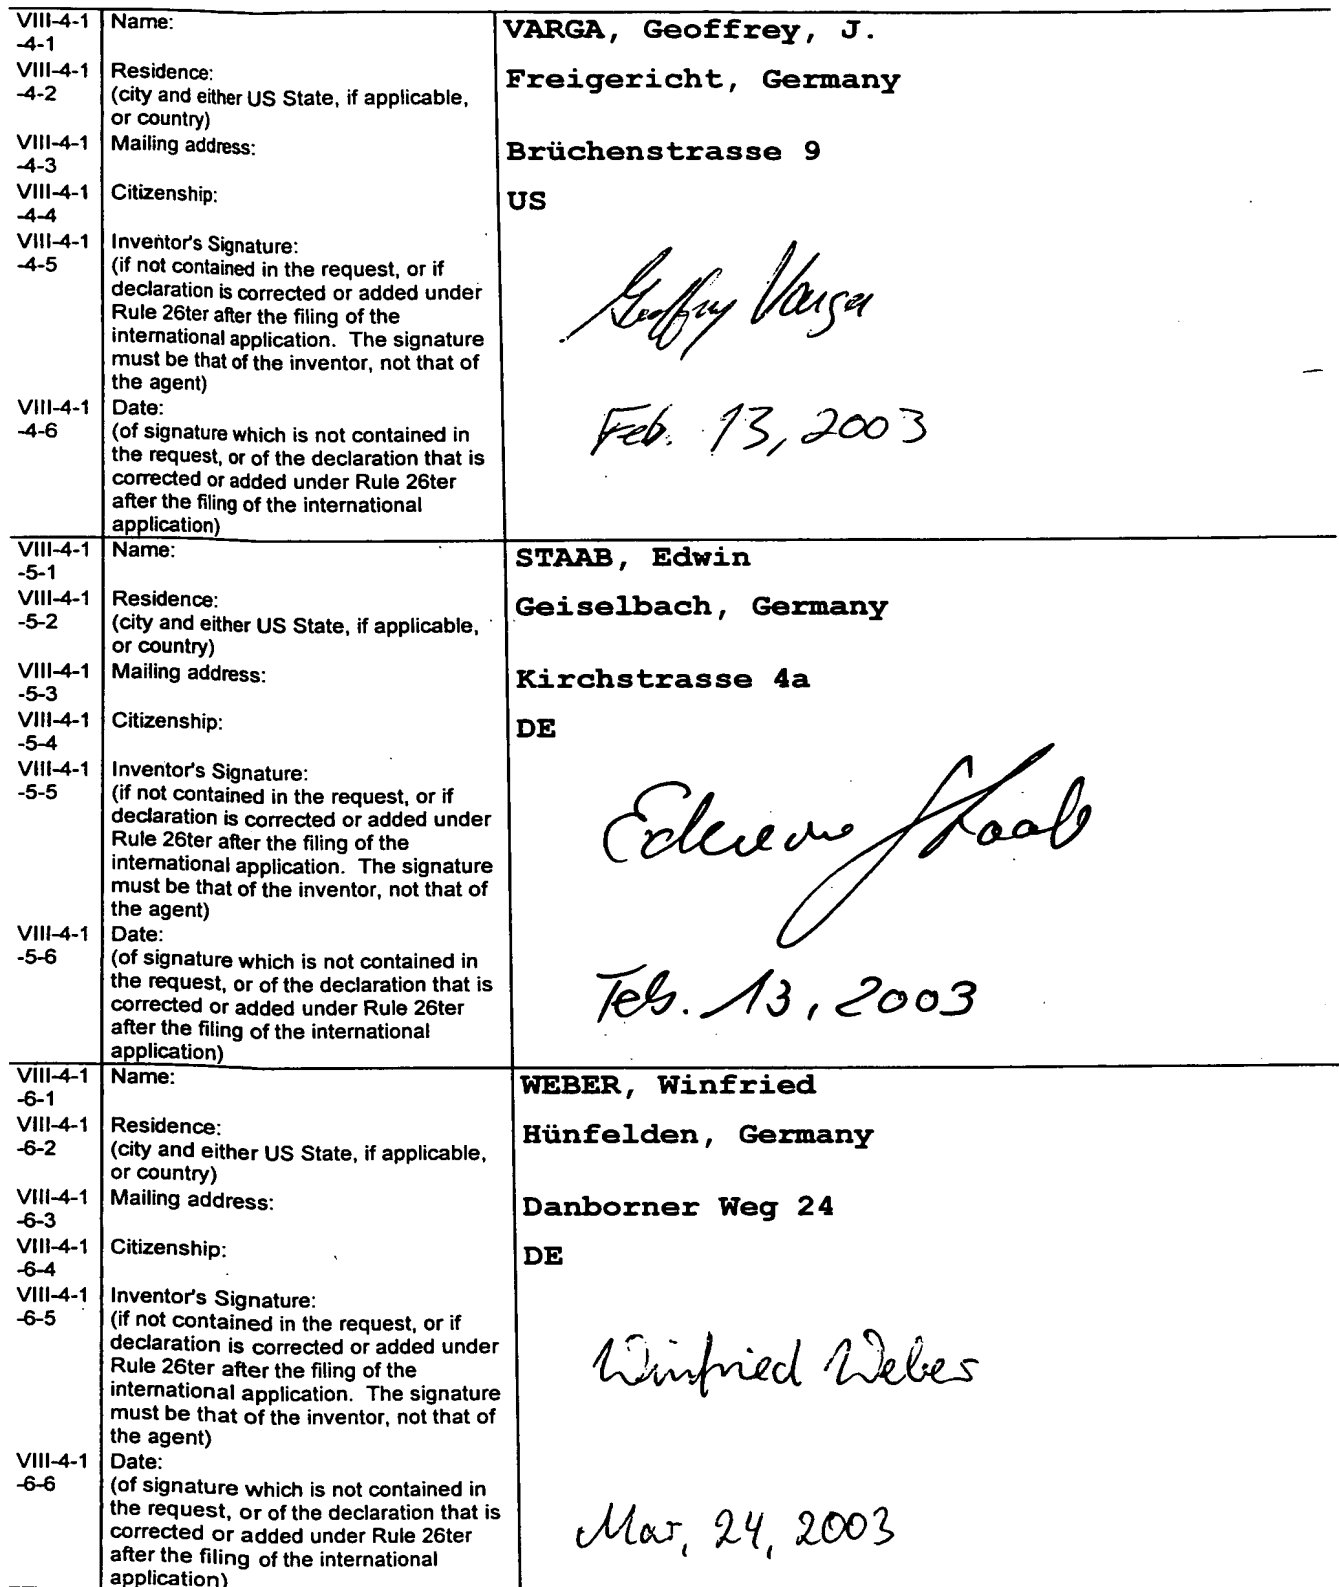 VIII-4-1 Name: VARGA, Geoffrey, J.
-4-1
VIII-4-1 Residence: Freigericht, Germany
-4-2 (city and either US State, if applicable,
or country)
VIII-4-1 Mailing address: Brüchenstrasse 9
-4-3
VIII-4-1 Citizenship: US
-4-4
VIII-4-1 Inventor's Signature:
-4-5 (if not contained in the request, or if
declaration is corrected or added under
Rule 26ter after the filing of the
international application. The signature
must be that of the inventor, not that of
the agent)
Geoffrey Varga
VIII-4-1 Date:
-4-6 (of signature which is not contained in
the request, or of the declaration that is
corrected or added under Rule 26ter
after the filing of the international
application)
Feb. 13, 2003
VIII-4-1 Name: STAAB, Edwin
-5-1
VIII-4-1 Residence: Geiselbach, Germany
-5-2 (city and either US State, if applicable,
or country)
VIII-4-1 Mailing address: Kirchstrasse 4a
-5-3
VIII-4-1 Citizenship: DE
-5-4
VIII-4-1 Inventor's Signature:
-5-5 (if not contained in the request, or if
declaration is corrected or added under
Rule 26ter after the filing of the
international application. The signature
must be that of the inventor, not that of
the agent)
Edwin Staab
VIII-4-1 Date:
-5-6 (of signature which is not contained in
the request, or of the declaration that is
corrected or added under Rule 26ter
after the filing of the international
application)
Feb. 13, 2003
VIII-4-1 Name: WEBER, Winfried
-6-1
VIII-4-1 Residence: Hünfelden, Germany
-6-2 (city and either US State, if applicable,
or country)
VIII-4-1 Mailing address: Danborner Weg 24
-6-3
VIII-4-1 Citizenship: DE
-6-4
VIII-4-1 Inventor's Signature:
-6-5 (if not contained in the request, or if
declaration is corrected or added under
Rule 26ter after the filing of the
international application. The signature
must be that of the inventor, not that of
the agent)
Winfried Weber
VIII-4-1 Date:
-6-6 (of signature which is not contained in
the request, or of the declaration that is
corrected or added under Rule 26ter
after the filing of the international
application)
Mar, 24, 2003